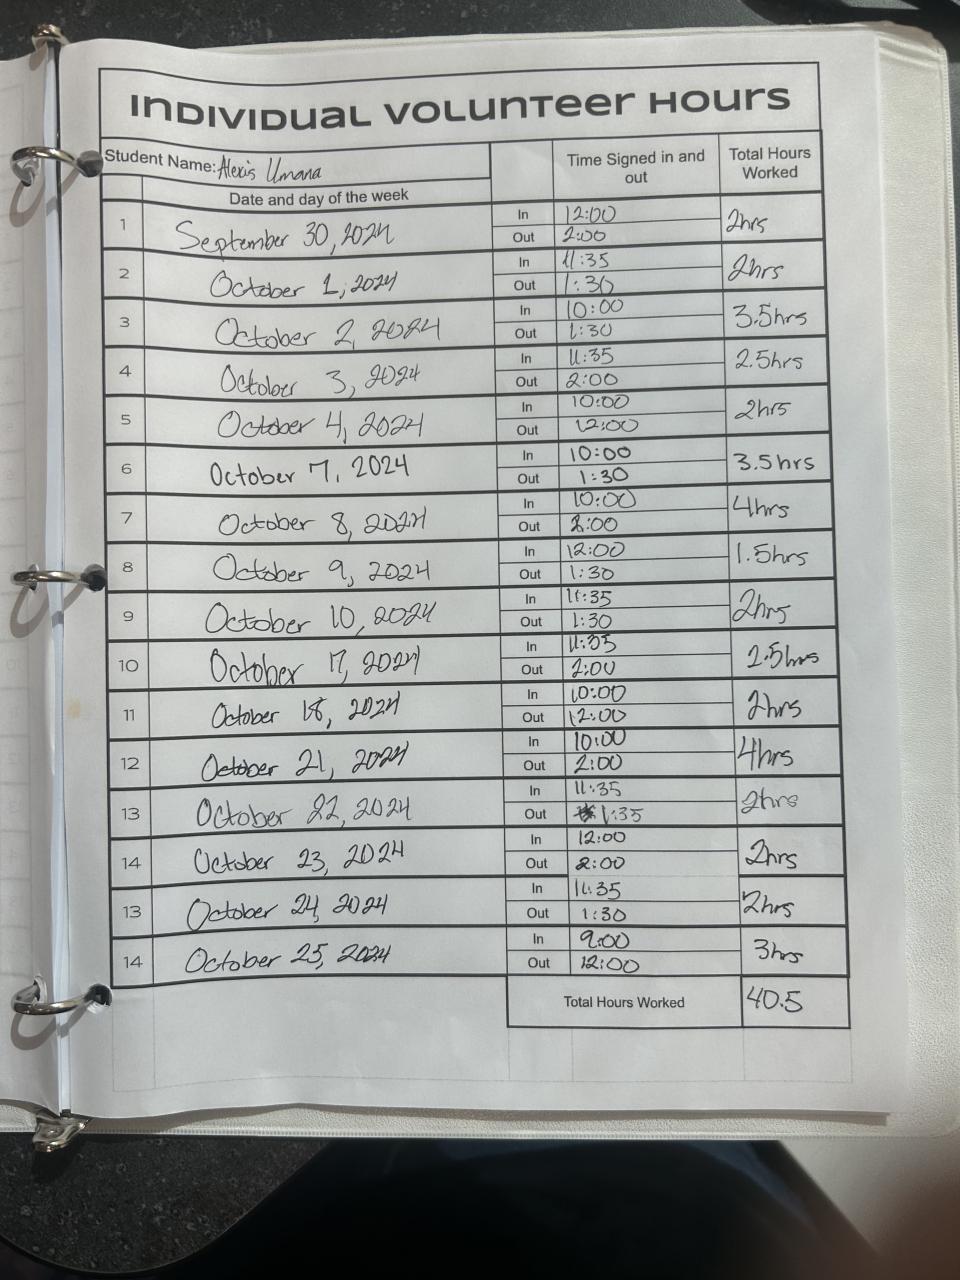 INDIVIDUAL VOLUNTEER HOURS
Student Name: Alexis Umana
Time Signed in and out
Total Hours Worked
Date and day of the week
1 September 30, 2024 In 12:00 2hrs
Out 2:00
2 October 1, 2024 In 11:35 2hrs
Out 1:30
3 October 2, 2024 In 10:00 3.5hrs
Out 1:30
4 October 3, 2024 In 11:35 2.5hrs
Out 2:00
5 October 4, 2024 In 10:00 2hrs
Out 12:00
6 October 7, 2024 In 10:00 3.5hrs
Out 1:30
7 October 8, 2024 In 10:00 4hrs
Out 2:00
8 October 9, 2024 In 12:00 1.5hrs
Out 1:30
9 October 10, 2024 In 11:35 2hrs
Out 1:30
10 October 17, 2024 In 11:35 2.5hrs
Out 2:00
11 October 18, 2024 In 10:00 2hrs
Out 12:00
12 October 21, 2024 In 10:00 4hrs
Out 2:00
13 October 22, 2024 In 11:35 2hrs
Out 1:35
14 October 23, 2024 In 12:00 2hrs
Out 2:00
13 October 24, 2024 In 11:35 2hrs
Out 1:30
14 October 25, 2024 In 9:00 3hrs
Out 12:00
Total Hours Worked 40.5